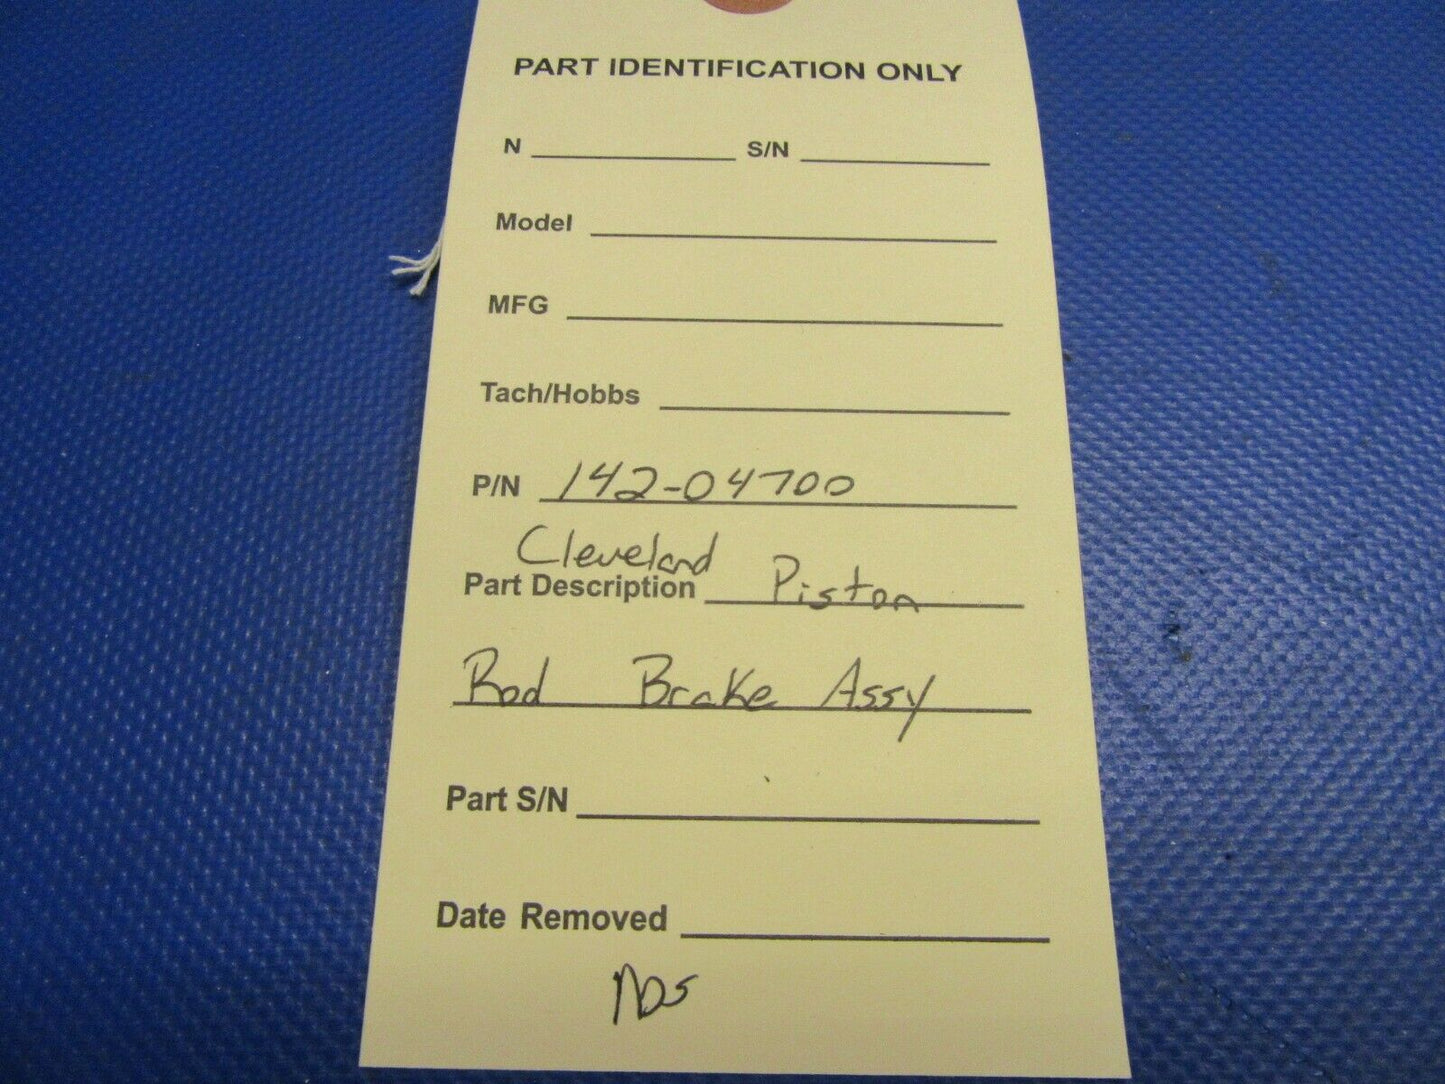 PART IDENTIFICATION ONLY
N S/N
Model
MFG
Tach/Hobbs
P/N 142-04700
Cleveland
Part Description Piston
Rod Brake Assy
Part S/N
Date Removed
NOS